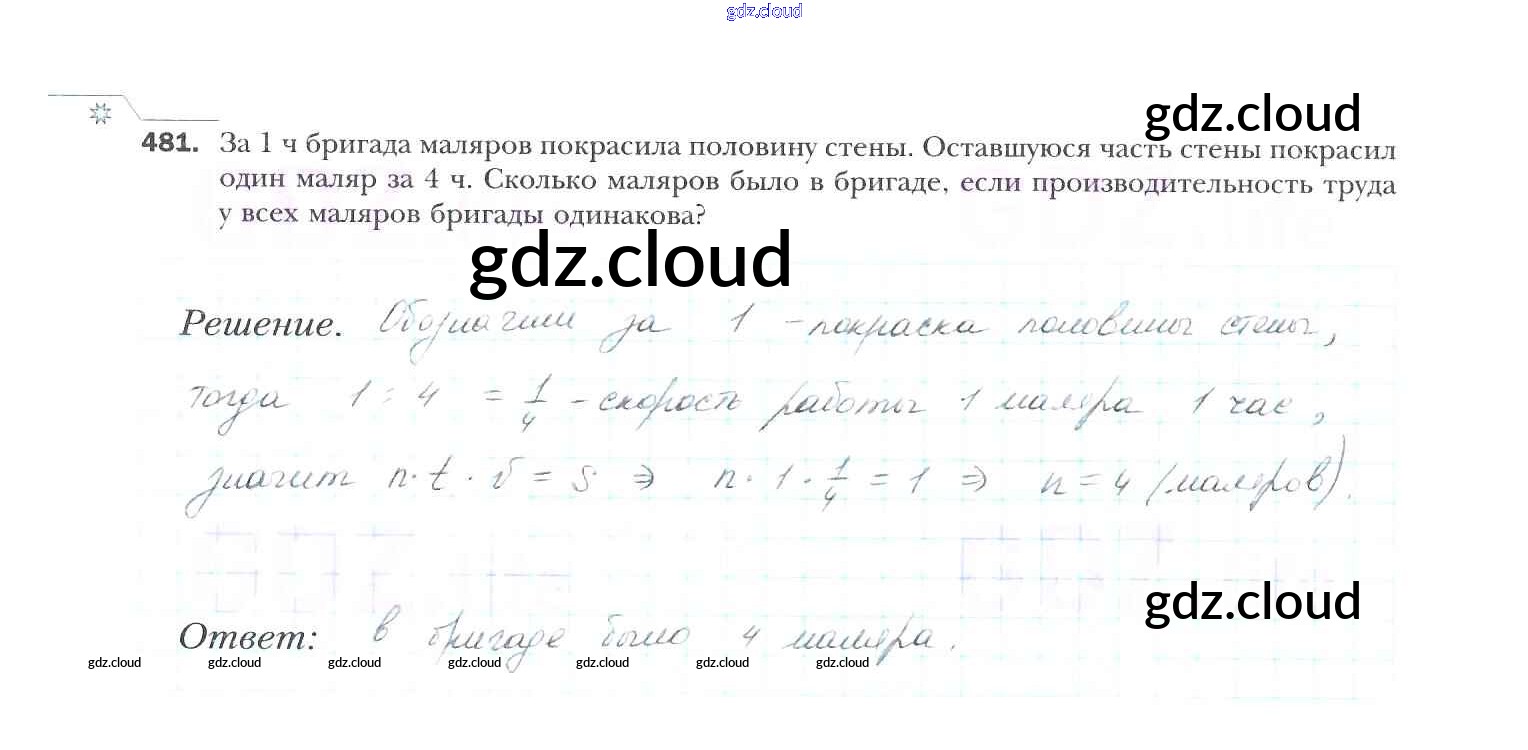 gdz.cloud
gdz.cloud
481. За 1 ч бригада маляров покрасила половину стены. Оставшуюся часть стены покрасил
один маляр за 4 ч. Сколько маляров было в бригаде, если производительность труда
у всех маляров бригады одинакова?
gdz.cloud
Решение. Обозначим за 1 - покраска половины стены,
тогда 1 : 4 = 1/4 - скорость работы 1 маляра 1 час,
значит n · t · v = s ⇒ n · 1 · 1/4 = 1 ⇒ n = 4 (маляров).
gdz.cloud
Ответ: в бригаде было 4 маляра.
gdz.cloud gdz.cloud gdz.cloud gdz.cloud gdz.cloud gdz.cloud gdz.cloud